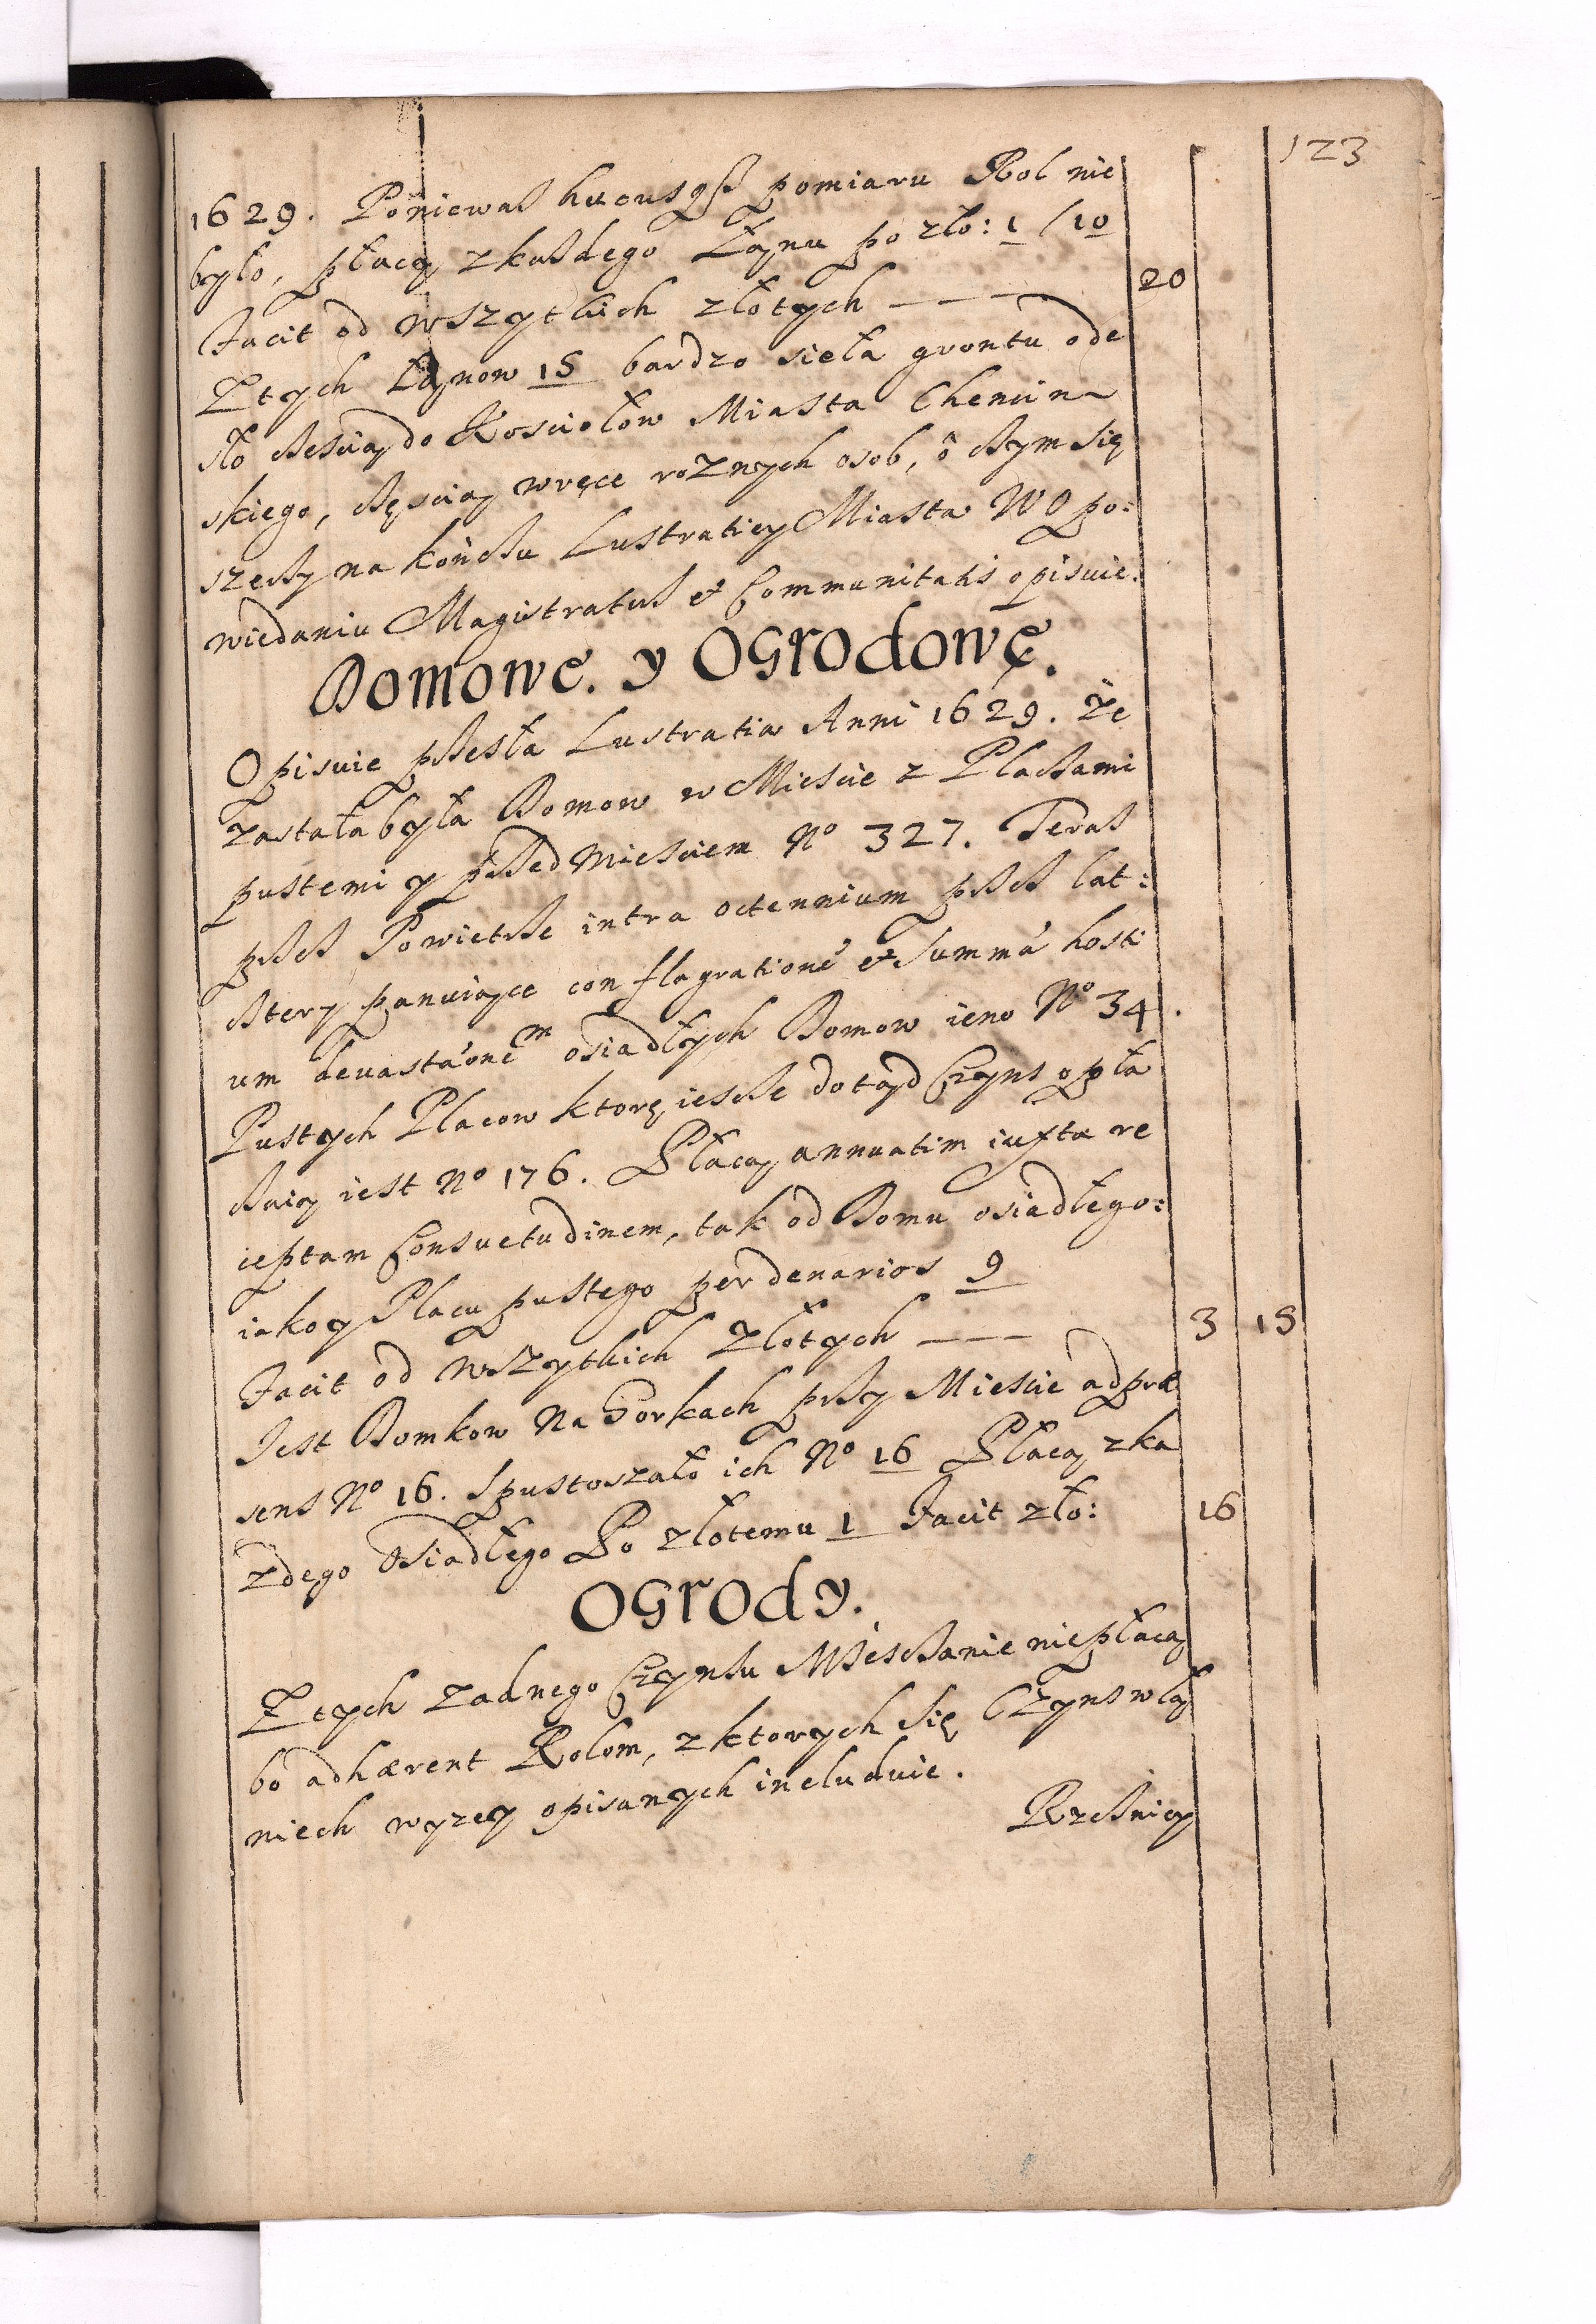 123
1629. Poniewasz hucusqz pomiaru Rol nie
było, płacą zkaszdego Łąnu po zło: 1 / 10
Facit od wszytkich złotych — — — 20
Ztych Łąnow 15 bardzo sieła grontu ode
sło częscią do Kosciołow Miasta Chencin
skiego, częscią wręce roznych osob, o czym się
szerzy na kończu Lustratiey Miasta W Opo:
wiedaniu Magistratus et Communitatis opisuie.
Domowe. y Ogrodowe.
Opisuie przesła Lustratia Anni 1629. Że
zastała była Domow w Miescie z Placzami
pustemi y przedMiesciem No 327. Terasz
przesz Powietrze intra octennium przesz lat:
cztery panuiące conflagrationé et summá hosti
um deuastaonem osiadłych Domow ieno No 34.
Pustych Placow ktore iescze dotąd Czyns opła
czaią iest No 176. Płacą annuatim iuxta re
ceptam Consuetudinem, tak od Domu osiadłego:
iako y Placu pustego per denarios 9
Facit od wszytkich Złotych — — — 3 15
Iest Domkow Na Gorkach przy Miescie ad præ
sens No 16. Spustoszało ich No 16 Płacą zka
zdego Osiadłego Po złotemu 1 Facit zło: 16
Ogrody.
Ztych zadnego Czynszu Miesczanie niepłacą
bo adhærent Rolom, z ktorych się Czyns w Łą
niech wyzey opisanych includuie.
Rzeźnicy